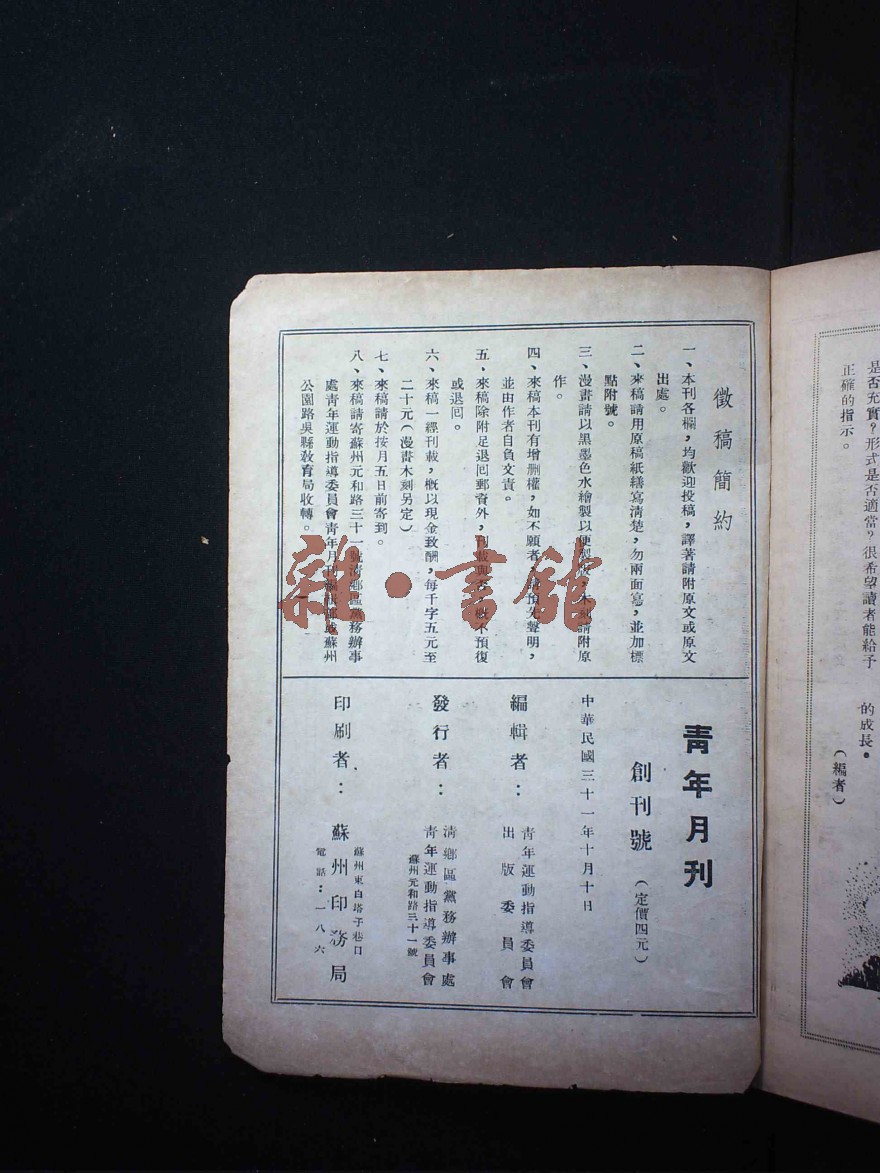 是否充實？形式是否適當？很希望讀者能給予
正確的指示。
的成長。
（編者）
徵稿簡約
一、本刊各欄，均歡迎投稿，譯著請附原文或原文
出處。
二、來稿請用原稿紙繕寫清楚，勿兩面寫，並加標
點附號。
三、漫畫請以黑墨色水繪製以便製版，木刻請附原
作。
四、來稿本刊有增刪權，如不願者，請預先聲明，
並由作者自負文責。
五、來稿除附足退回郵資外，刊載與否，概不預復
或退回。
六、來稿一經刊載，概以現金致酬，每千字五元至
二十元（漫畫木刻另定）
七、來稿請於按月五日前寄到。
八、來稿請寄蘇州元和路三十一號清鄉區黨務辦事
處青年運動指導委員會青年月刊編輯部或蘇州
公園路吳縣教育局收轉。
青年月刊
創刊號（定價四元）
中華民國三十一年十月十日
編輯者：青年運動指導委員會
出版委員會
發行者：清鄉區黨務辦事處
青年運動指導委員會
蘇州元和路三十一號
印刷者：蘇州印務局
蘇州東白塔子巷口
電話：一八六
雜·書館